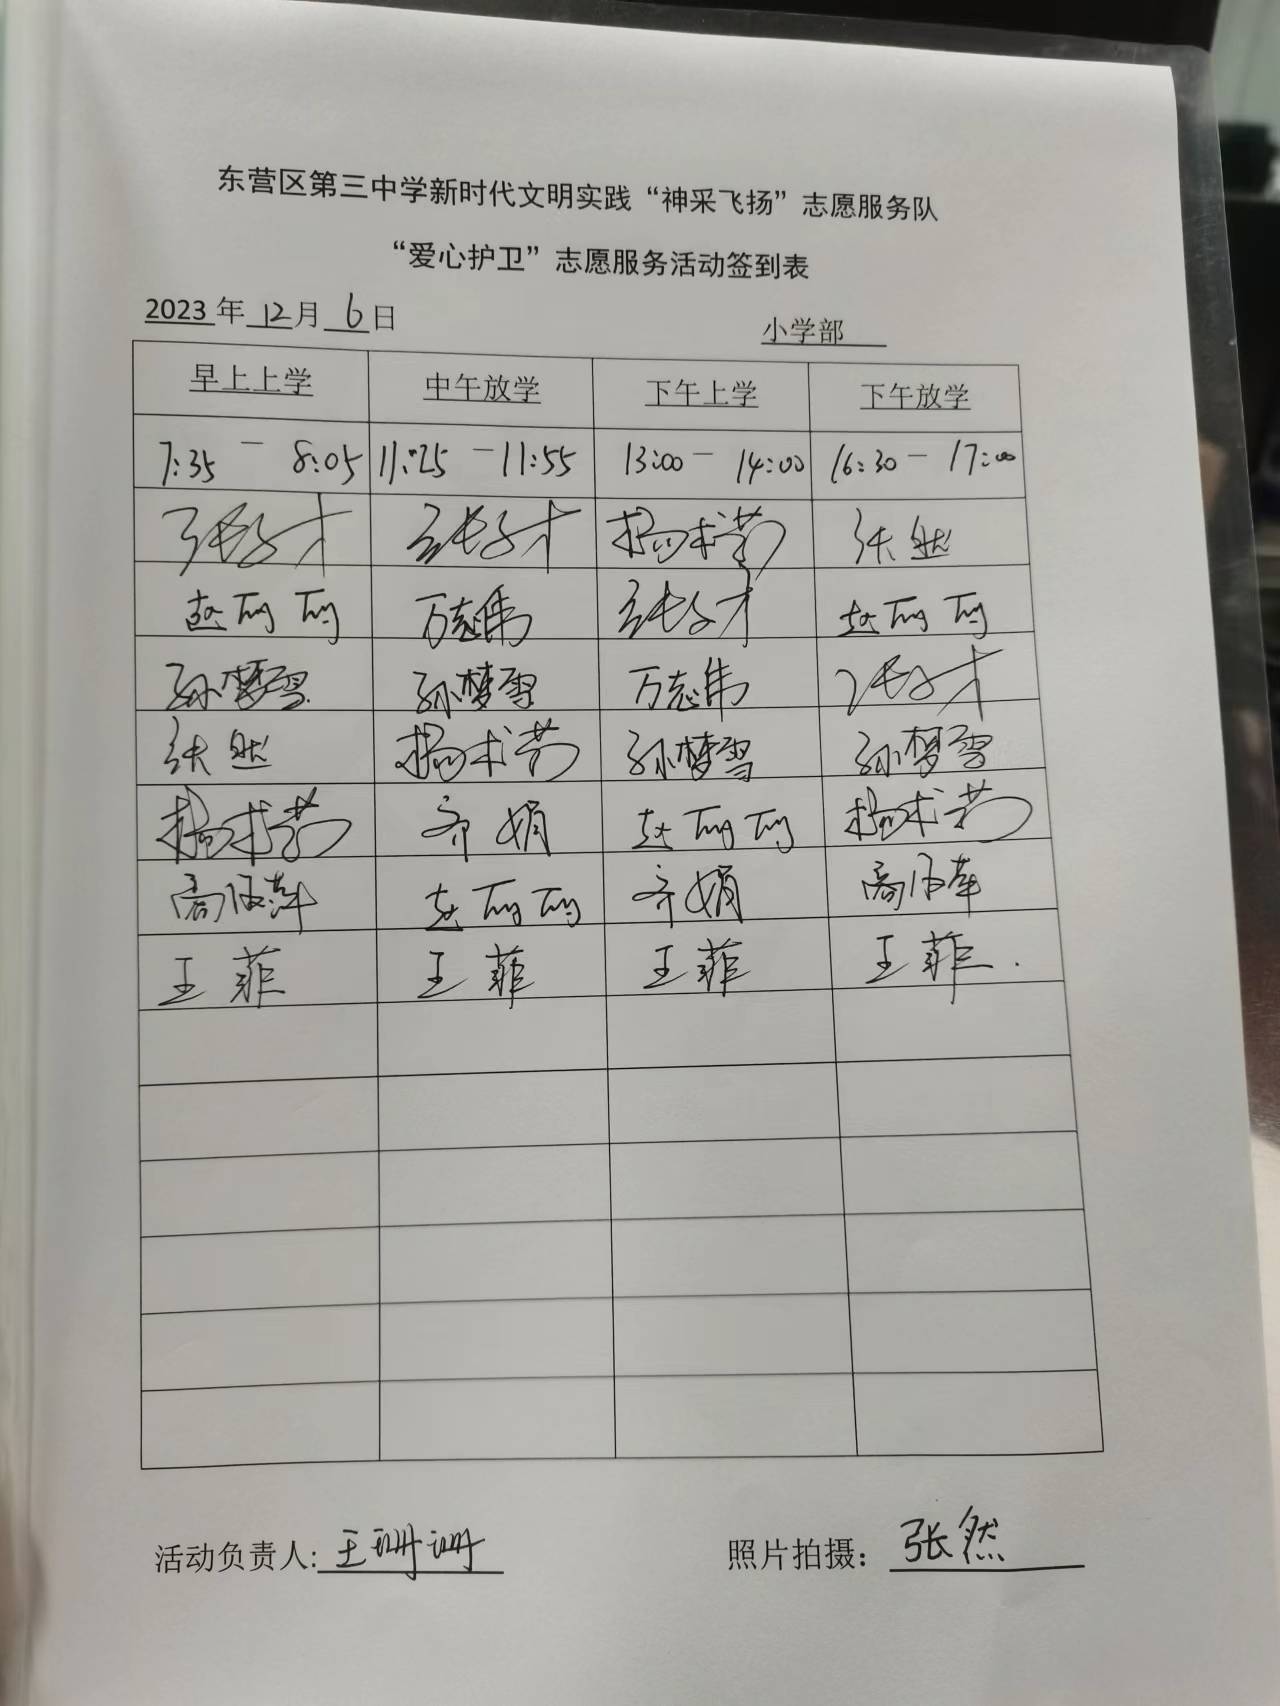 东营区第三中学新时代文明实践“神采飞扬”志愿服务队
“爱心护卫”志愿服务活动签到表
2023年12月6日 小学部
早上上学 中午放学 下午上学 下午放学
7:35 - 8:05 11:25 - 11:55 13:00 - 14:00 16:30 - 17:00
张子才 张子才 杨术芳 张然
赵丽丽 万志伟 张子才 赵丽丽
孙梦雪 孙梦雪 万志伟 张子才
张然 杨术芳 孙梦雪 孙梦雪
杨术芳 齐娟 赵丽丽 杨术芳
赵丽丽 齐娟
王菲 王菲 王菲 王菲
活动负责人:王珊珊 照片拍摄：张然